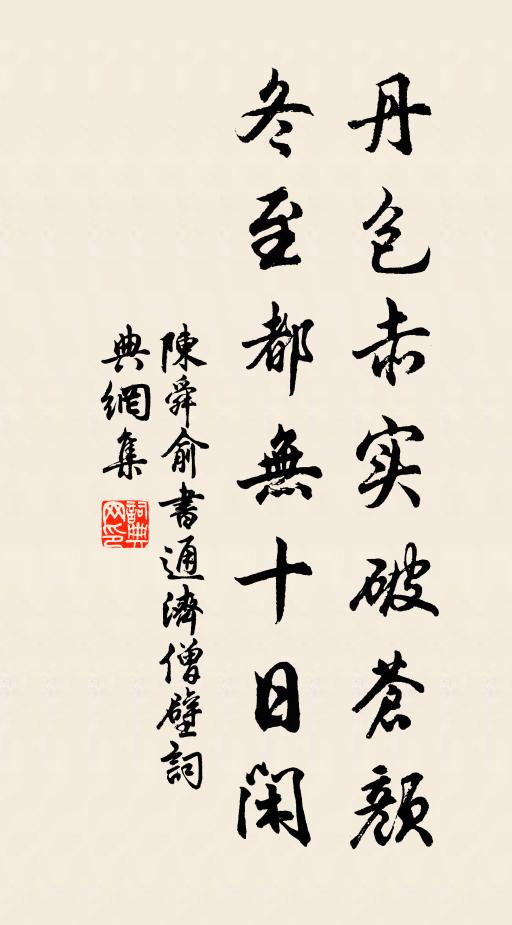 丹包赤实破蒼顔
冬至都無十日閑
陳舜俞書通濟僧壁詞
典網集
詞典
网印